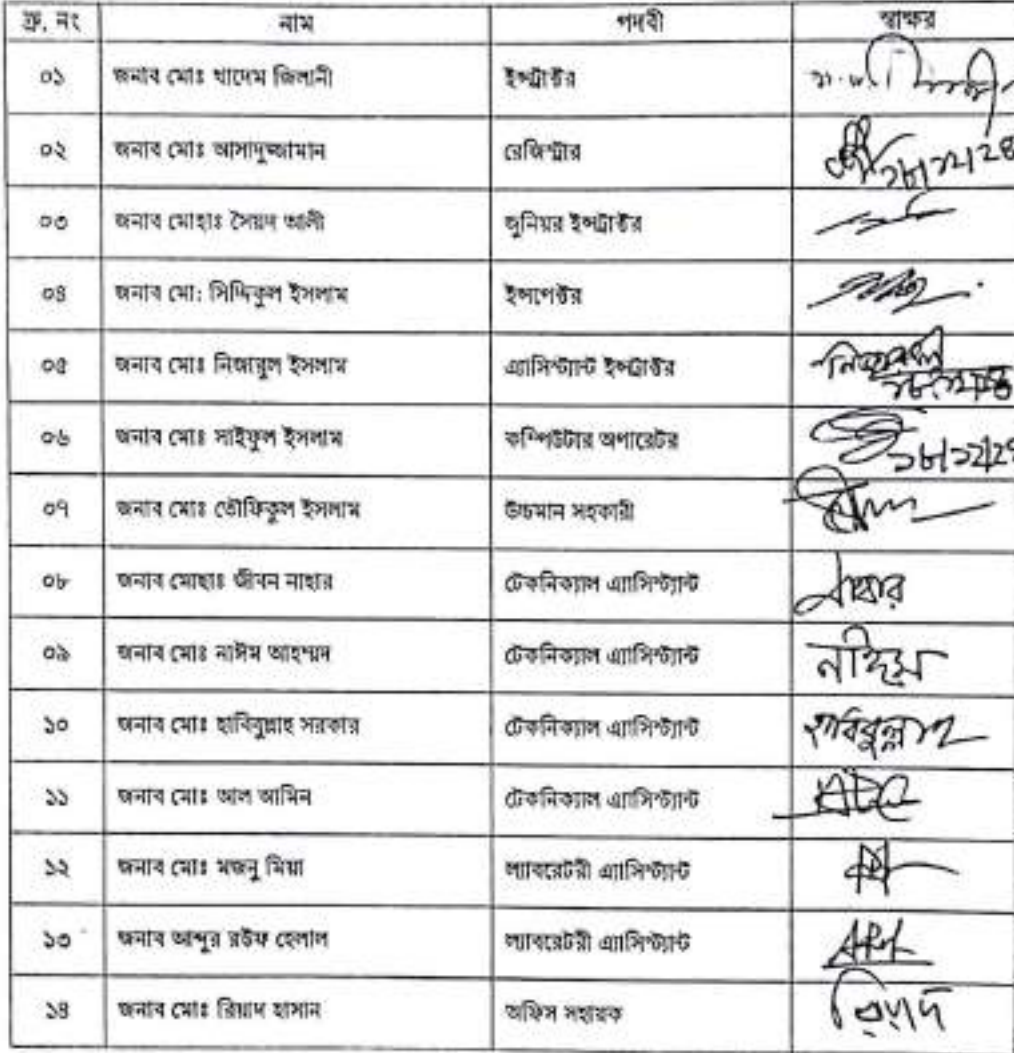 ক্র. নং নাম পদবী স্বাক্ষর
০১ জনাব মোঃ খাদেম জিলানী ইন্সট্রাক্টর
০২ জনাব মোঃ আসাদুজ্জামান রেজিস্ট্রার ১৮/১২/২৪
০৩ জনাব মোহাঃ সৈয়দ আলী জুনিয়র ইন্সট্রাক্টর
০৪ জনাব মো: সিদ্দিকুল ইসলাম ইন্সপেক্টর
০৫ জনাব মোঃ নিজারুল ইসলাম এ্যাসিস্ট্যান্ট ইন্সট্রাক্টর
০৬ জনাব মোঃ সাইফুল ইসলাম কম্পিউটার অপারেটর ১৮/১২/২৪
০৭ জনাব মোঃ তৌফিকুল ইসলাম উচ্চমান সহকারী
০৮ জনাব মোছাঃ জীবন নাহার টেকনিক্যাল এ্যাসিস্ট্যান্ট নাহার
০৯ জনাব মোঃ নাঈম আহম্মদ টেকনিক্যাল এ্যাসিস্ট্যান্ট নাঈম
১০ জনাব মোঃ হাবিবুল্লাহ সরকার টেকনিক্যাল এ্যাসিস্ট্যান্ট হাবিবুল্লাহ
১১ জনাব মোঃ আল আমিন টেকনিক্যাল এ্যাসিস্ট্যান্ট
১২ জনাব মোঃ মজনু মিয়া ল্যাবরেটরী এ্যাসিস্ট্যান্ট
১৩ জনাব আব্দুর রউফ হেলাল ল্যাবরেটরী এ্যাসিস্ট্যান্ট
১৪ জনাব মোঃ রিয়াদ হাসান অফিস সহায়ক রিয়াদ